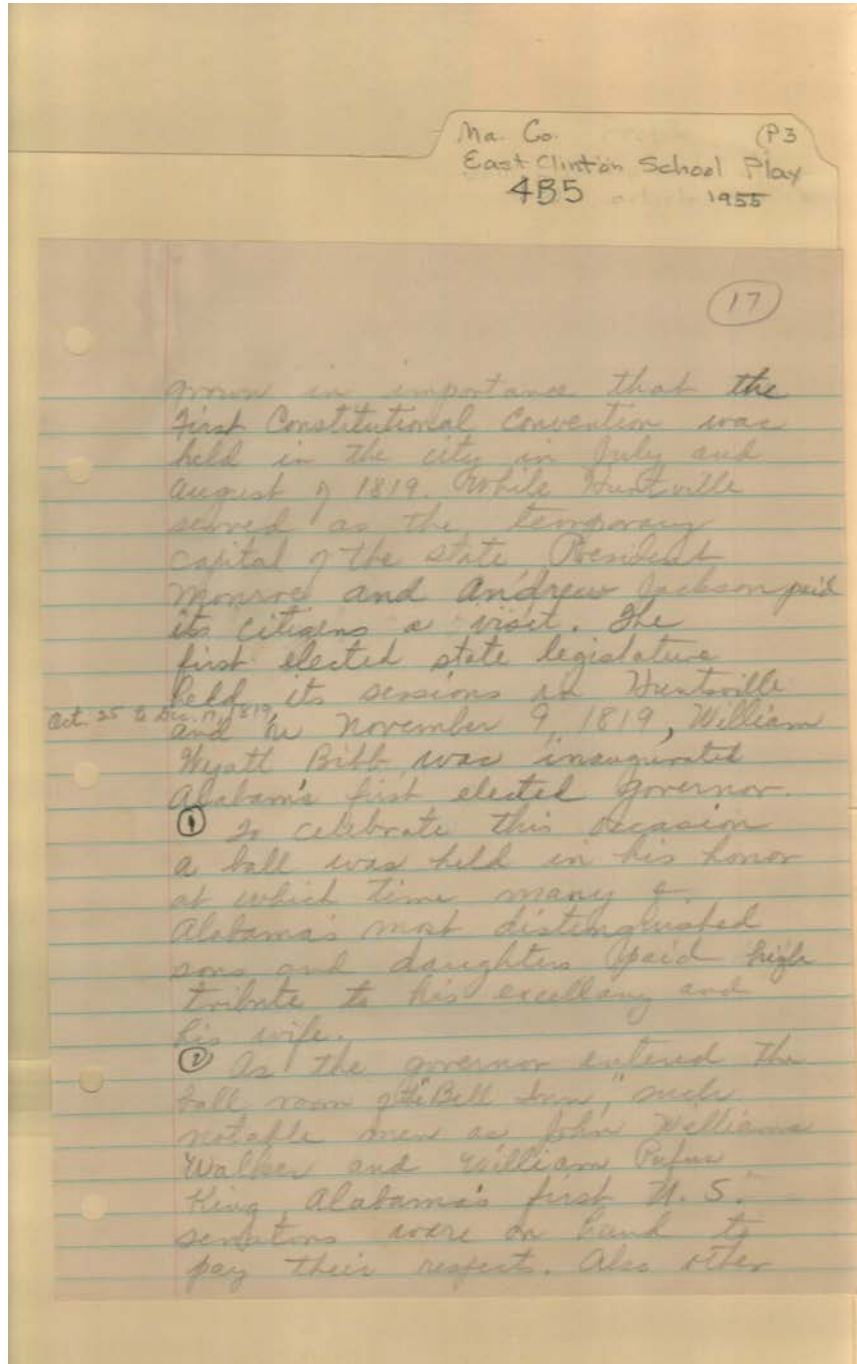 Ma. Co. (P3
East Clinton School Play
4B5 1955
17
grown in importance that the
First Constitutional Convention was
held in the city in July and
August of 1819. While Huntville
served as the temporary
capital of the state President
Monroe and Andrew Jackson paid
its citizens a visit. The
first elected state legislature
held its sessions in Huntsville
Oct. 25 to Dec. 17, 1819,
and on November 9, 1819, William
Wyatt Bibb was inaugurated
Alabam's first elected governor.
① To celebrate this occasion
a ball was held in his honor
at which time many of
Alabama's most distinguished
sons and daughters paid high
tribute to his excellany and
his wife.
② As the governor entered the
ball room of the "Bell Inn," such
notable men as John Williams
Walker and William Rufus
King, Alabama's first U.S.
senators were on hand to
pay their respects. Also other